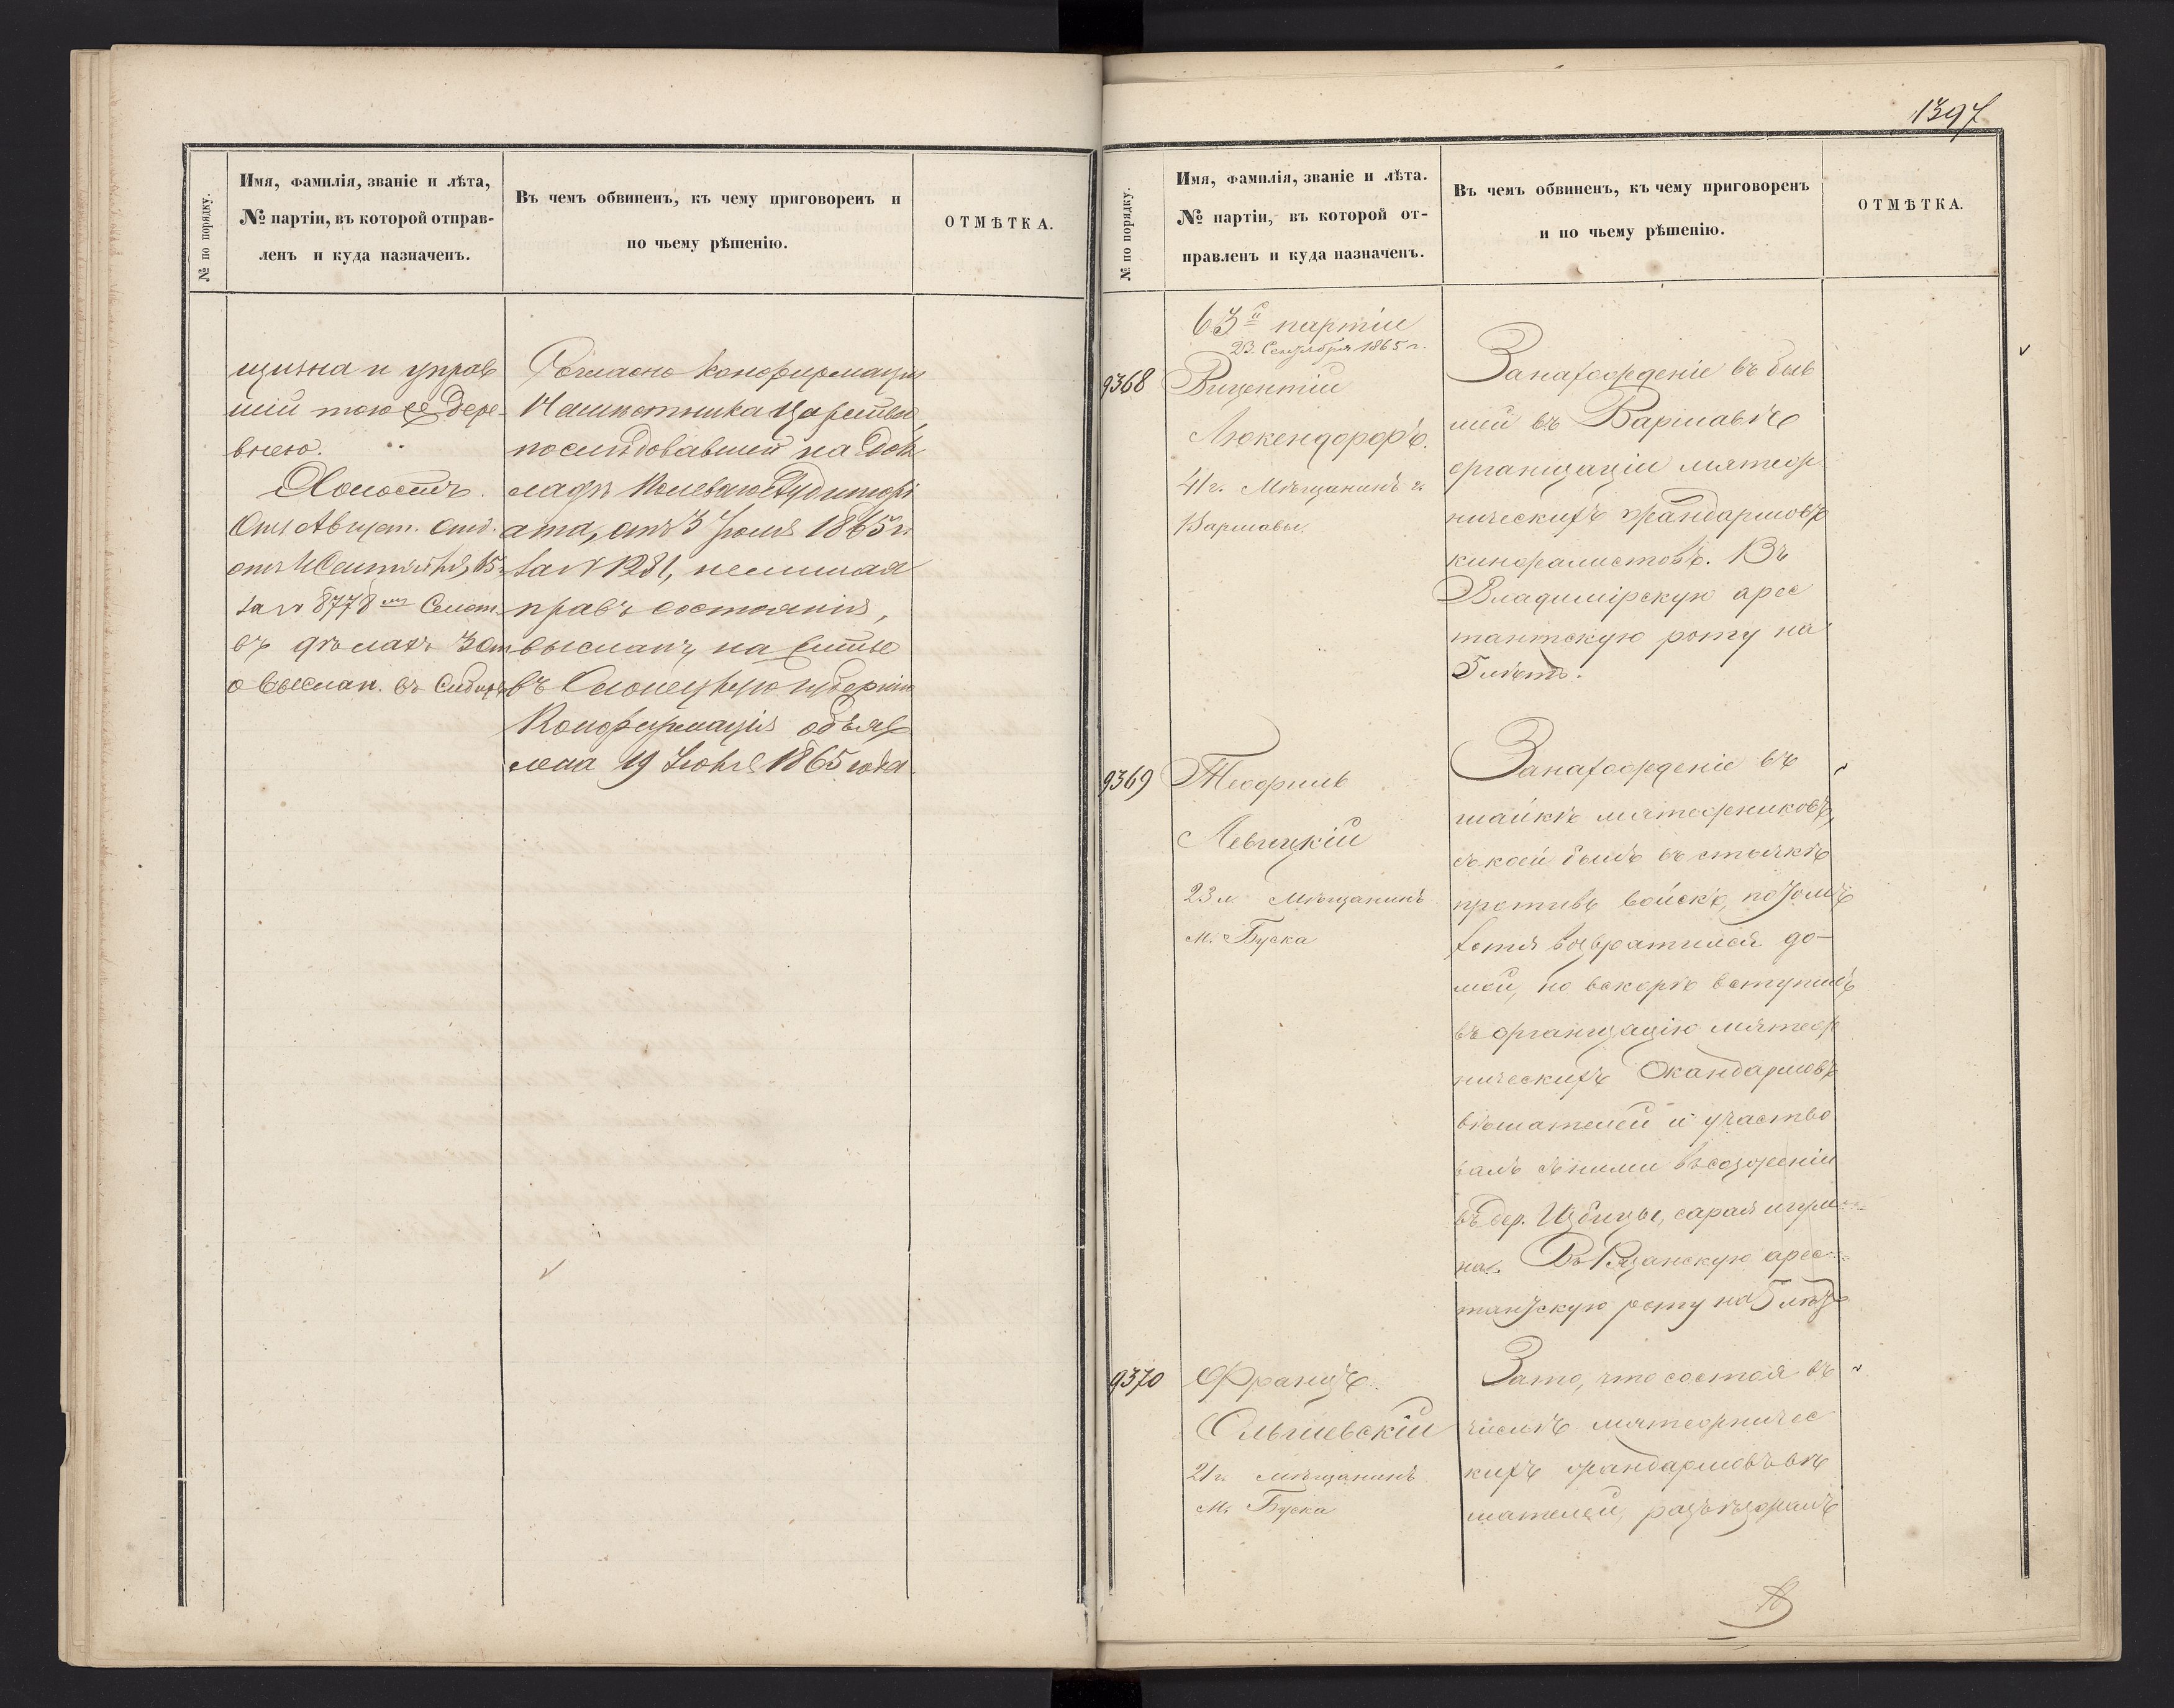 № по порядку.
Имя, фамилія, званіе и лѣта,
№ партіи, въ которой отправ-
ленъ и куда назначенъ.
Въ чемъ обвиненъ, къ чему приговоренъ и
по чьему рѣшенію.
ОТМѢТКА.
щизна и управ
шій тою же дере-
внею.
Холостъ.
за № 8778
въ дѣлахъ
о выслан. въ Сибирь
Согласно конфирмаціи
Намѣстника Царства,
послѣдовавшей на док
ладѣ Полеваго Аудиторі
ата, отъ 3 Іюля 1865 г.
за № 1231, не лишая
правъ состоянія,
высланъ на житье
въ Олонецкую губернію
Конфирмація объяв
лена 19 Іюля 1865 года.
1397
№ по порядку.
Имя, фамилія, званіе и лѣта.
№ партіи, въ которой от-
правленъ и куда назначенъ.
Въ чемъ обвиненъ, къ чему приговоренъ
и по чьему рѣшенію.
ОТМѢТКА.
63й партіи
23 Сентября 1865 г.
9368
Вицентій
Люкендорфъ.
41 г. Мѣщанинъ г.
Варшавы.
За нахожденіе въ быв
шей въ Варшавѣ
организаціи мятеж
ническихъ жандармовъ
кинжалистовъ. Въ
Владимірскую арес
тантскую роту на
5 лѣтъ.
9369
Теофиль
Левицкій
23 л. Мѣщанинъ
м. Буска
За нахожденіе въ
шайкѣ мятежниковъ,
съ коей былъ въ стычкѣ
противъ войскъ, потомъ
хотя возвратился до-
мой, но вскорѣ вступилъ
въ организацію мятеж
ническихъ жандармовъ
вѣшателей и участво
валъ съ ними въ сожженіи
въ дер. Избицы, сарая и гум
на. Въ Рязанскую арес
тантскую роту на 5 лѣтъ
9370
Францъ
Ольшевскій
21 г. мѣщанинъ
м. Буска
За то, что состоя въ
числѣ мятежничес
кихъ жандармовъ вѣ
шателей, разъѣзжалъ